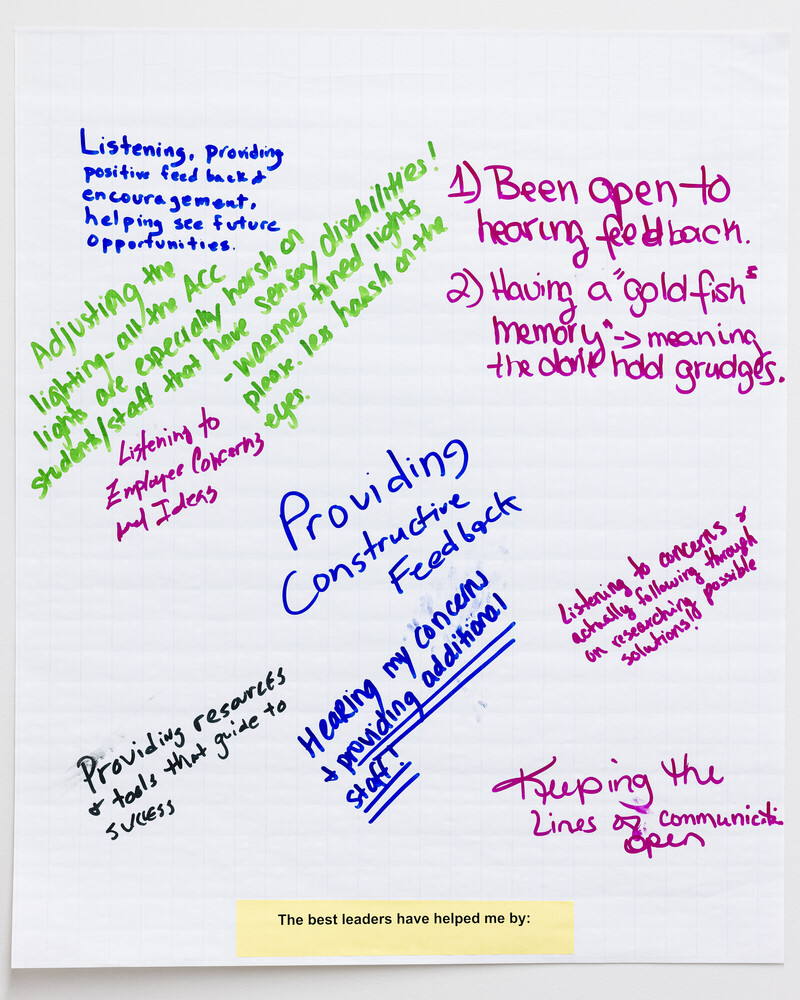 Listening, providing
positive feed back &
encouragement,
helping see future
opportunities.
Adjusting the
lighting - all the ACC
lights are especially harsh on
student/staff that have sensory disabilities!
- warmer toned lights
please. less harsh on the
eyes.
1) Been open to
hearing feedback.
2) Having a "gold fish"
memory" -> meaning
the dont hold grudges.
Listening to
Employee Concerns
and Ideas
Providing
Constructive
Feedback
Listening to concerns &
actually following through
on researching possible
solutions!
Hearing my concerns
& providing additional
staff!
Providing resources
& tools that guide to
success
Keeping the
Lines of communicati
open
The best leaders have helped me by: